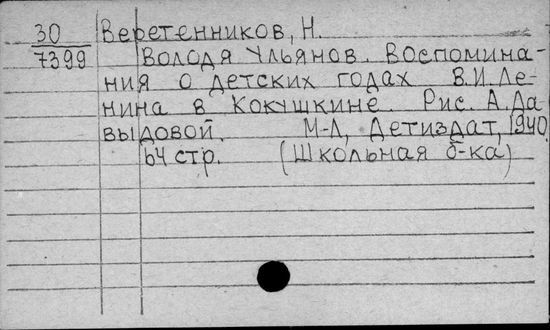 30 Веретенников, Н.
7399 Володя Ульянов. Воспомина-
ния о детских годах В.И.Ле-
нина в Кокушкине. Рис. А.Да
выдовой. М-Л, Детиздат, 1940.
64 стр. (Школьная б-ка)